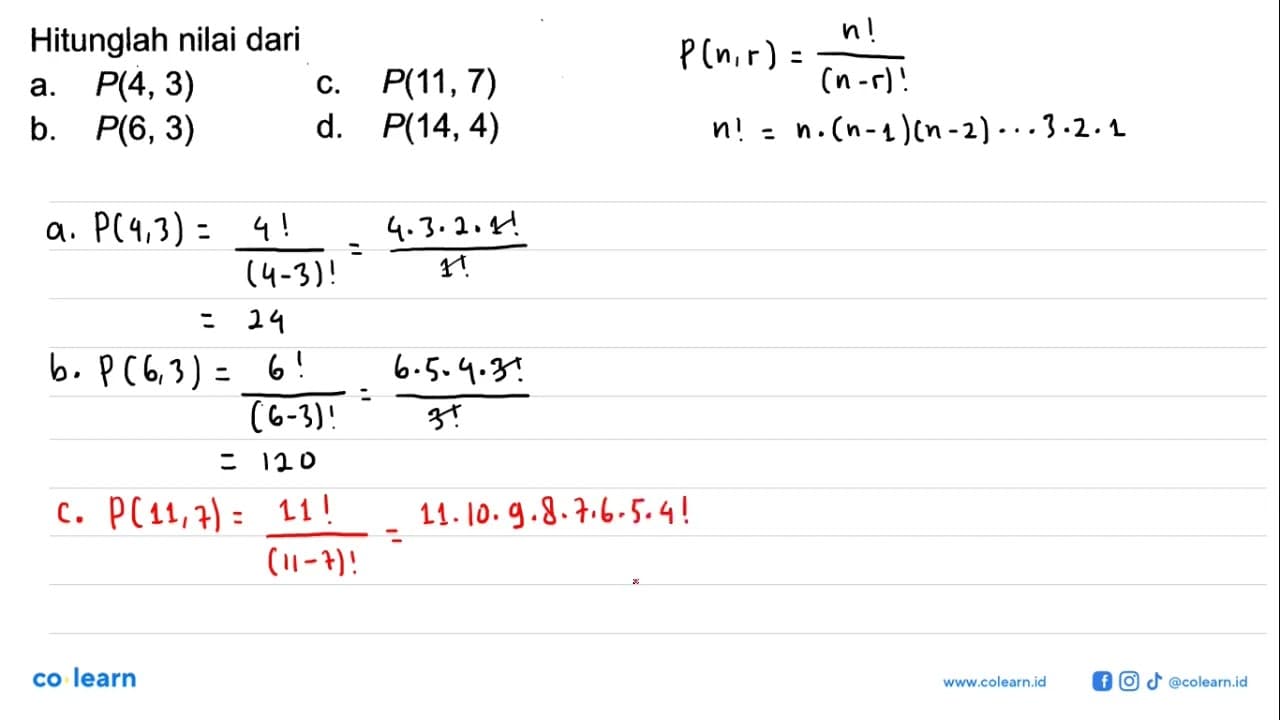 Hitunglah nilai dari
a. P(4, 3) c. P(11, 7)
b. P(6, 3) d. P(14, 4)
P(n,r) = n! / (n-r)!
n! = n.(n-1)(n-2)...3.2.1
a. P(4,3) = 4! / (4-3)! = 4.3.2.1! / 1!
= 24
b. P(6,3) = 6! / (6-3)! = 6.5.4.3! / 3!
= 120
c. P(11,7) = 11! / (11-7)! = 11.10.9.8.7.6.5.4!
co learn
www.colearn.id
@colearn.id